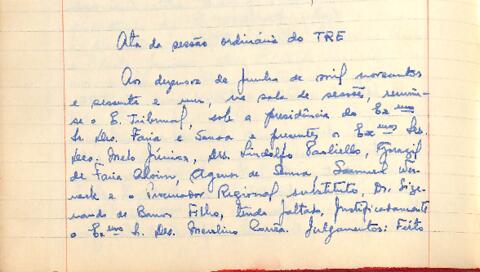 Ata da sessão ordinária do TRE
Aos dezenove de Junho de mil novecentos
e sessenta e um, na sala de sessões, reuniu-
se o E. Tribunal, sob a presidência do Exmo
Sr. Des. Faria e Sousa e presentes os Exmos Srs.
Des. Melo Júnior, Drs. Lindolfo Paoliello,
de Faria Alvim, Agenor de Senna, Samuel Wer-
neck e o Procurador Regional, substituto, Dr. Size-
nando de Barros Filho, tendo faltado, justificadamente
o Exmo Sr. Des. Merolino Corrêa. Julgamentos: Feito